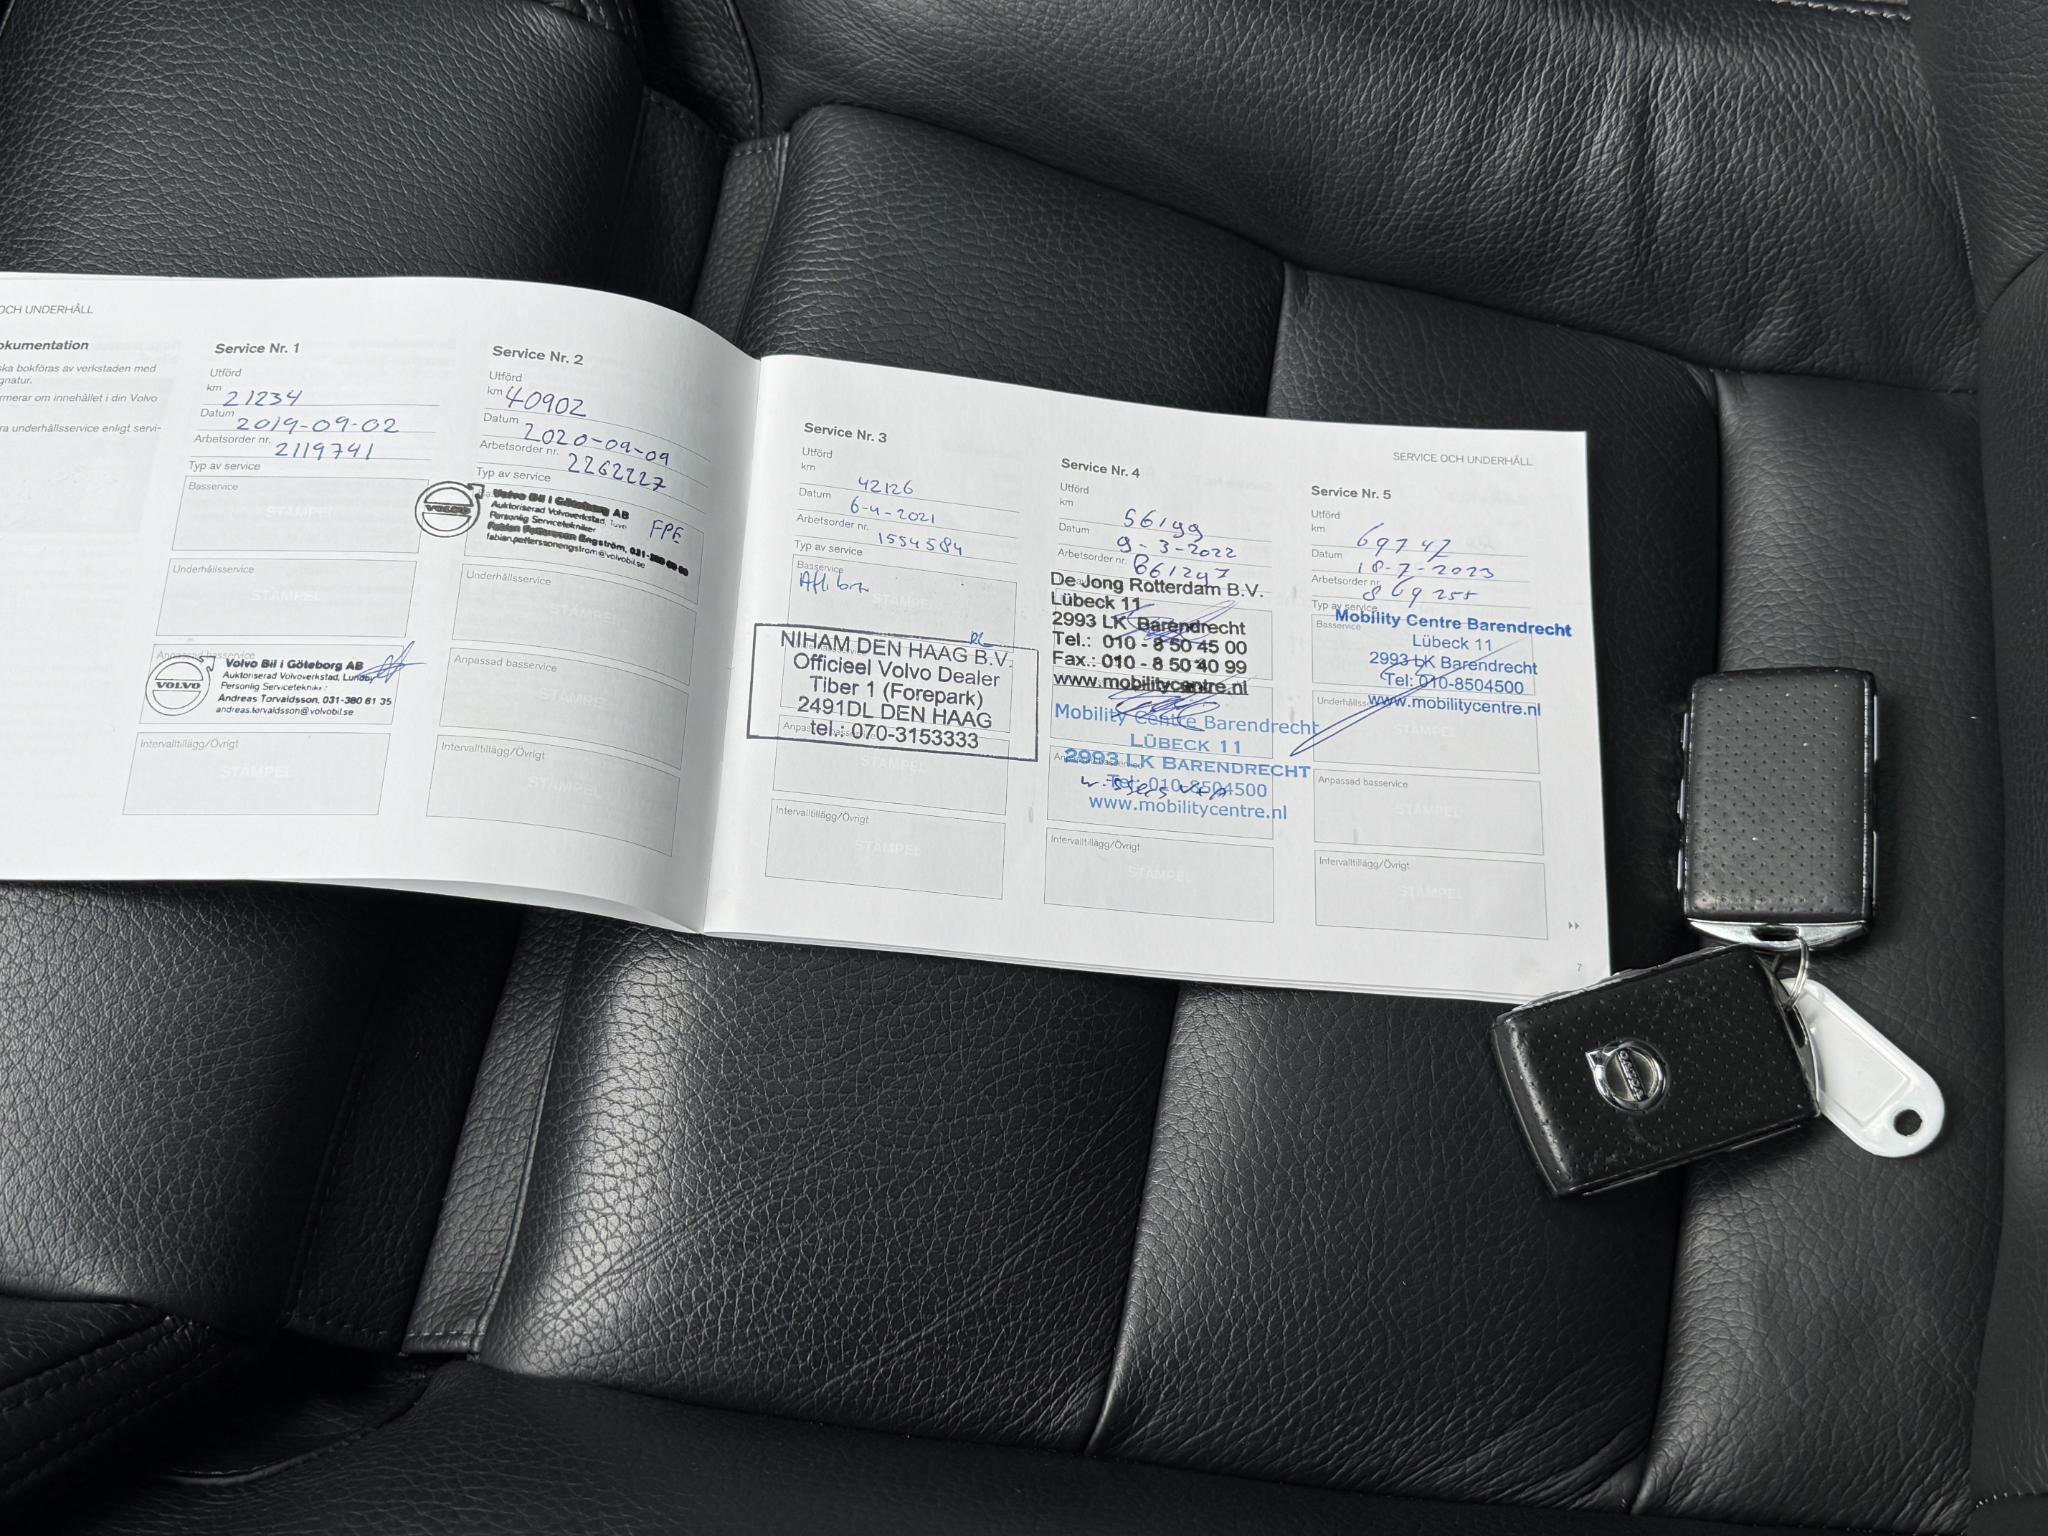 OCH UNDERHÅLL
okumentation
ska bokföras av verkstaden med
gnatur.
rmerar om innehållet i din Volvo
ra underhållsservice enligt servi-
Service Nr. 1
Utförd
km 21234
Datum 2019-09-02
Arbetsorder nr. 2119741
Typ av service
Basservice
STÄMPEL
Underhållsservice
STÄMPEL
Anpassad basservice
VOLVO
Volvo Bil i Göteborg AB
Auktoriserad Volvoverkstad, Lundby
Personlig Servicetekniker:
Andreas Torvaldsson, 031-380 81 35
andreas.torvaldsson@volvobil.se
Intervalltillägg/Övrigt
STÄMPEL
Service Nr. 2
Utförd
km 40902
Datum 2020-09-09
Arbetsorder nr. 2262227
Typ av service
VOLVO
Volvo Bil i Göteborg AB
Auktoriserad Volvoverkstad, Tuve
Personlig Servicetekniker
Fabian Pettersson Engström, 031-
fabian.petterssonengstrom@volvobil.se
FPE
Underhållsservice
STÄMPEL
Anpassad basservice
STÄMPEL
Intervalltillägg/Övrigt
STÄMPEL
Service Nr. 3
Utförd
km 42126
Datum 6-4-2021
Arbetsorder nr. 1554584
Typ av service
Basservice
STÄMPEL
NIHAM DEN HAAG B.V.
Officieel Volvo Dealer
Tiber 1 (Forepark)
2491DL DEN HAAG
tel.: 070-3153333
Anpassad basservice
STÄMPEL
Intervalltillägg/Övrigt
STÄMPEL
Service Nr. 4
Utförd
km 56199
Datum 9-3-2022
Arbetsorder nr. 861297
De Jong Rotterdam B.V.
Lübeck 11
2993 LK Barendrecht
Tel.: 010 - 8 50 45 00
Fax.: 010 - 8 50 40 99
www.mobilitycentre.nl
Mobility Centre Barendrecht
LÜBECK 11
2993 LK BARENDRECHT
Tel: 010-8504500
www.mobilitycentre.nl
Intervalltillägg/Övrigt
STÄMPEL
SERVICE OCH UNDERHÅLL
Service Nr. 5
Utförd
km 69747
Datum 18-7-2023
Arbetsorder nr. 869255
Typ av service
Basservice
Mobility Centre Barendrecht
Lübeck 11
2993 LK Barendrecht
Tel: 010-8504500
www.mobilitycentre.nl
Underhållsservice
STÄMPEL
Anpassad basservice
STÄMPEL
Intervalltillägg/Övrigt
STÄMPEL
7
VOLVO